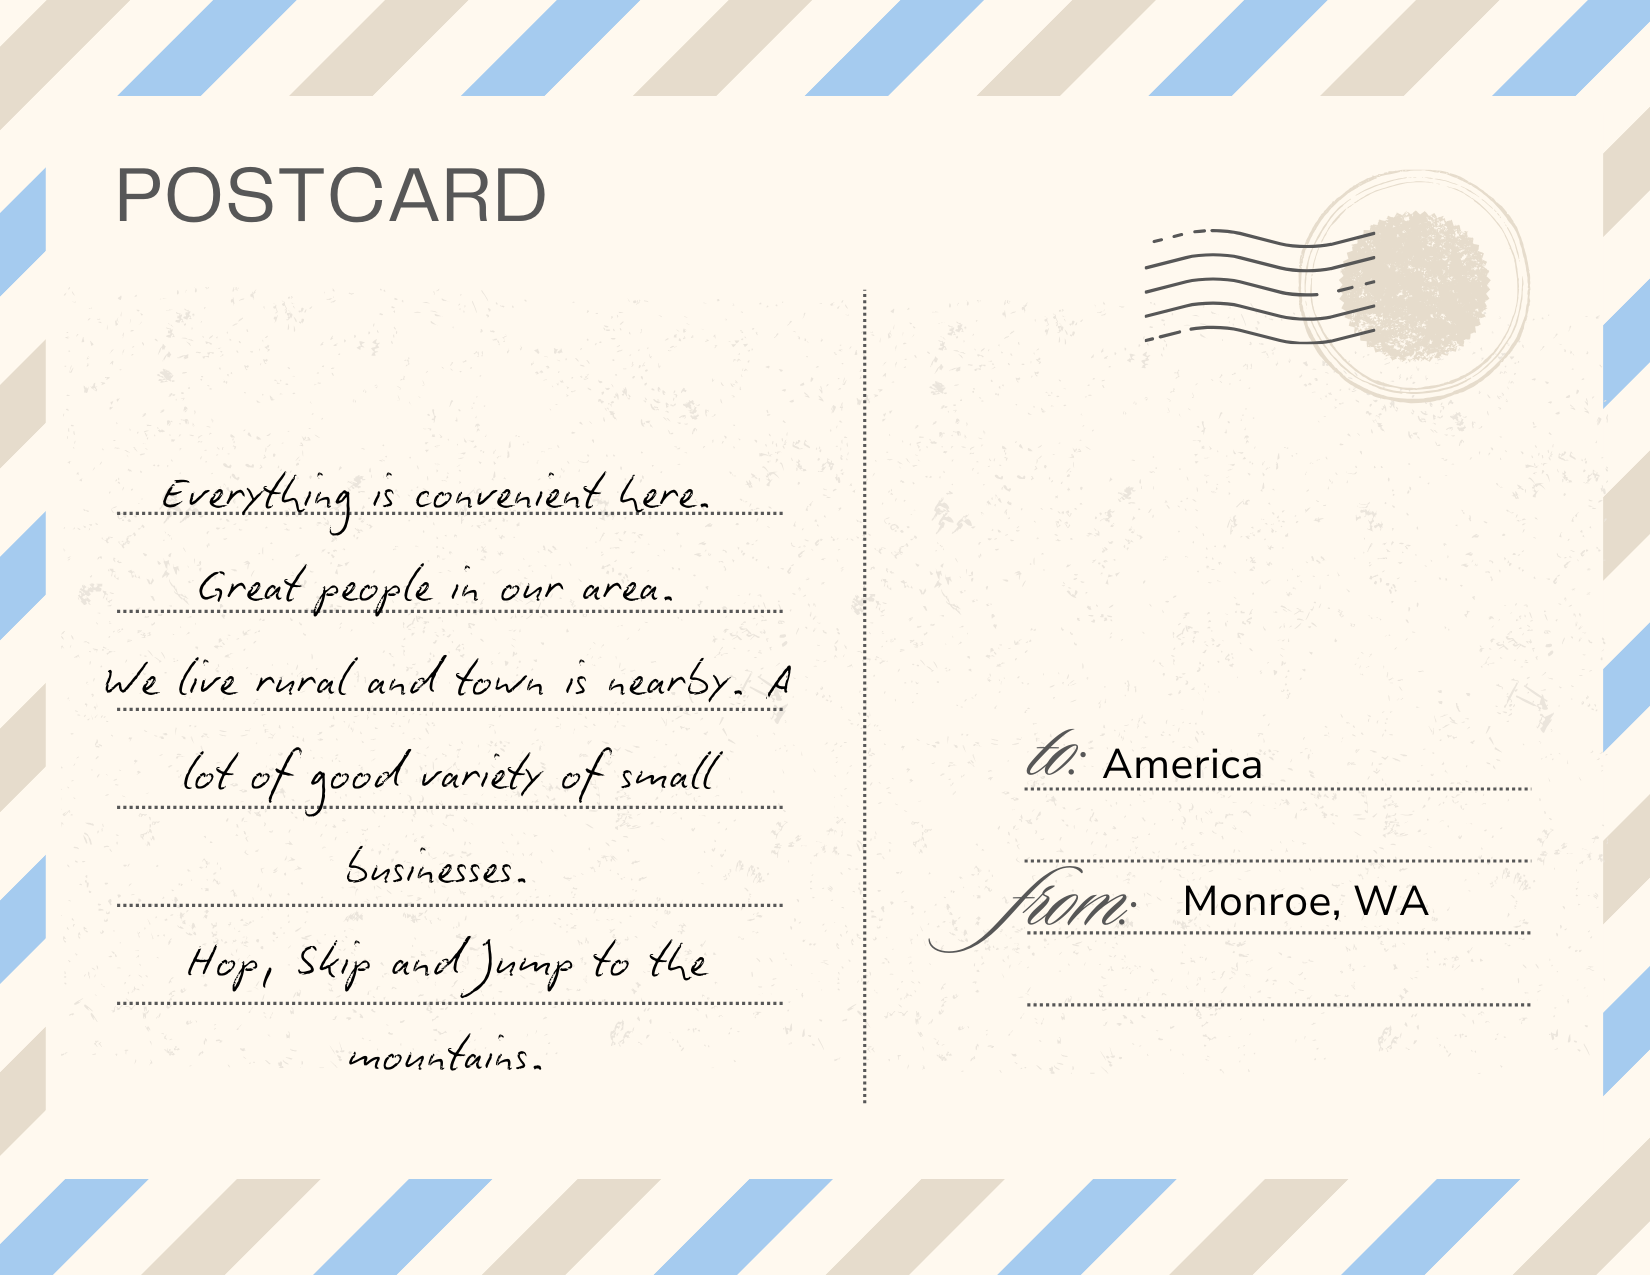 POSTCARD
Everything is convenient here.
Great people in our area.
We live rural and town is nearby. A
lot of good variety of small
businesses.
Hop, Skip and Jump to the
mountains.
to: America
from: Monroe, WA